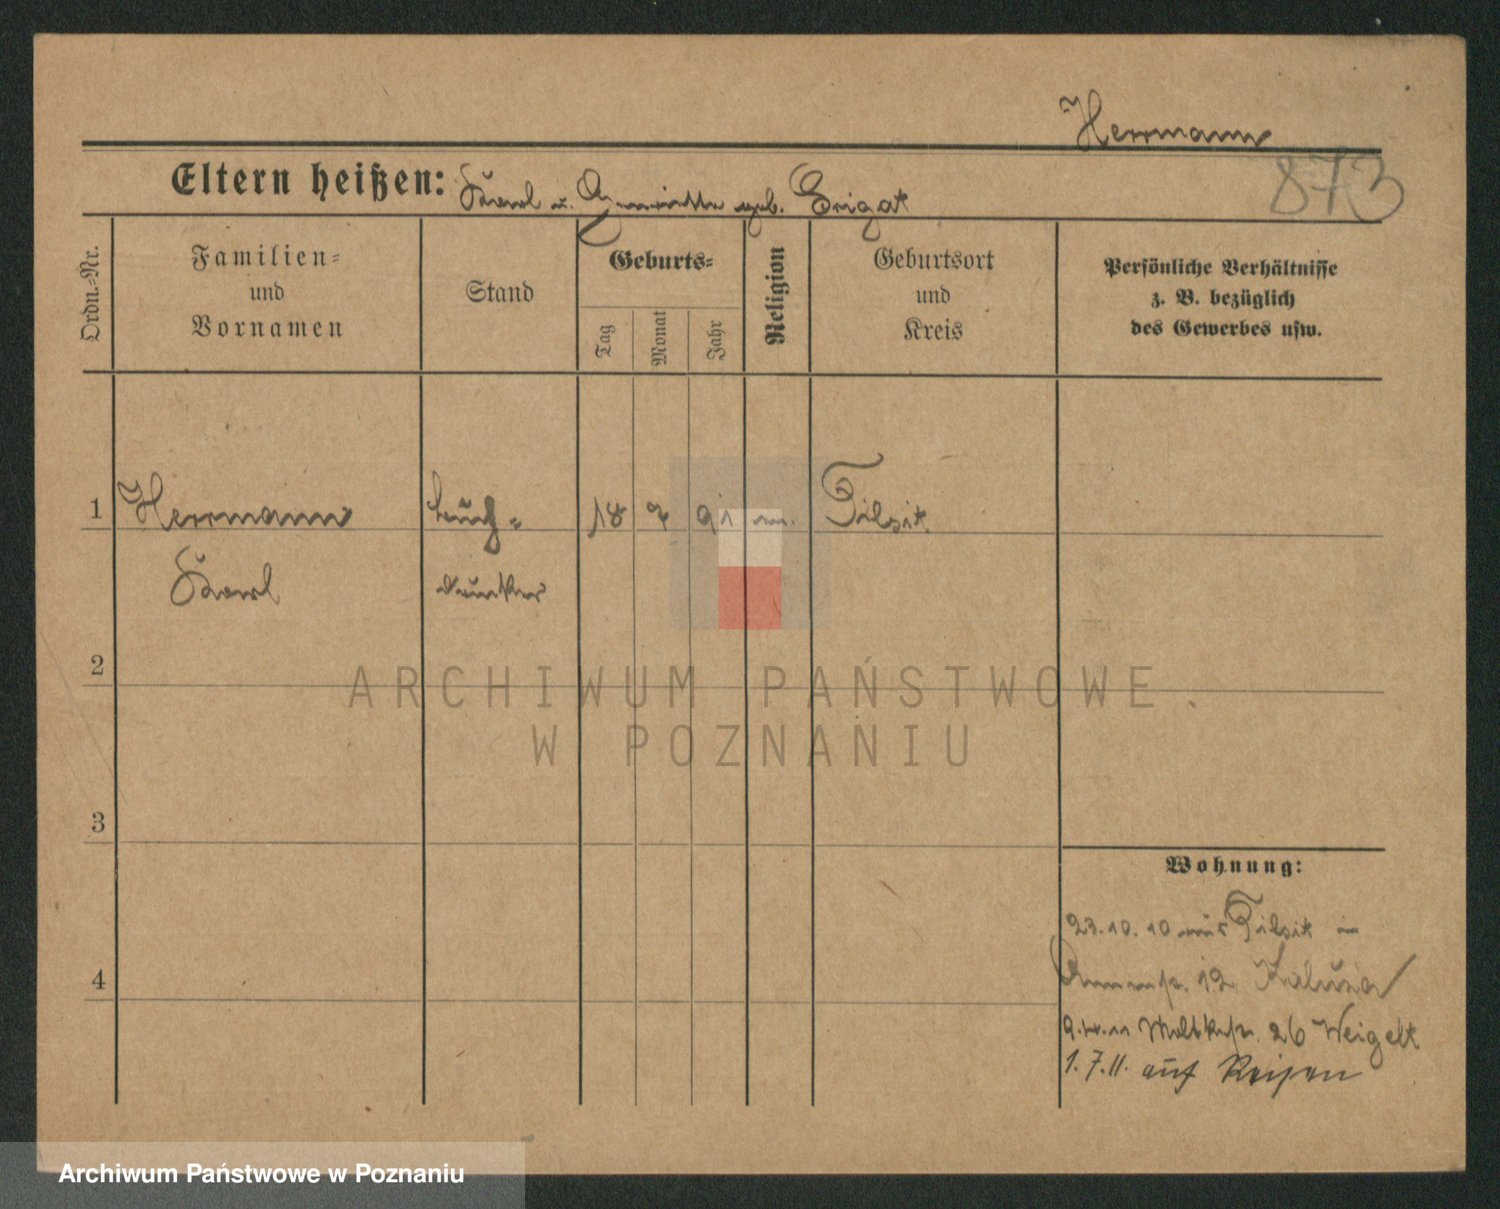 Herrmann
873
Eltern heißen: Karl u. Henriette geb. Grigat
Ordn.=Nr.
Familien=
und
Vornamen
Stand
Geburts=
Tag
Monat
Jahr
Religion
Geburtsort
und
Kreis
Persönliche Verhältnisse
z. B. bezüglich
des Gewerbes usw.
1 Herrmann Buch= 18 7 91 Tilsit
Karl drucker
2
3
4
Wohnung:
23.10.10 aus Tilsit in
12
26 Weigelt
1.7.11. auf Reisen
ARCHIWUM PAŃSTWOWE
W POZNANIU
Archiwum Państwowe w Poznaniu